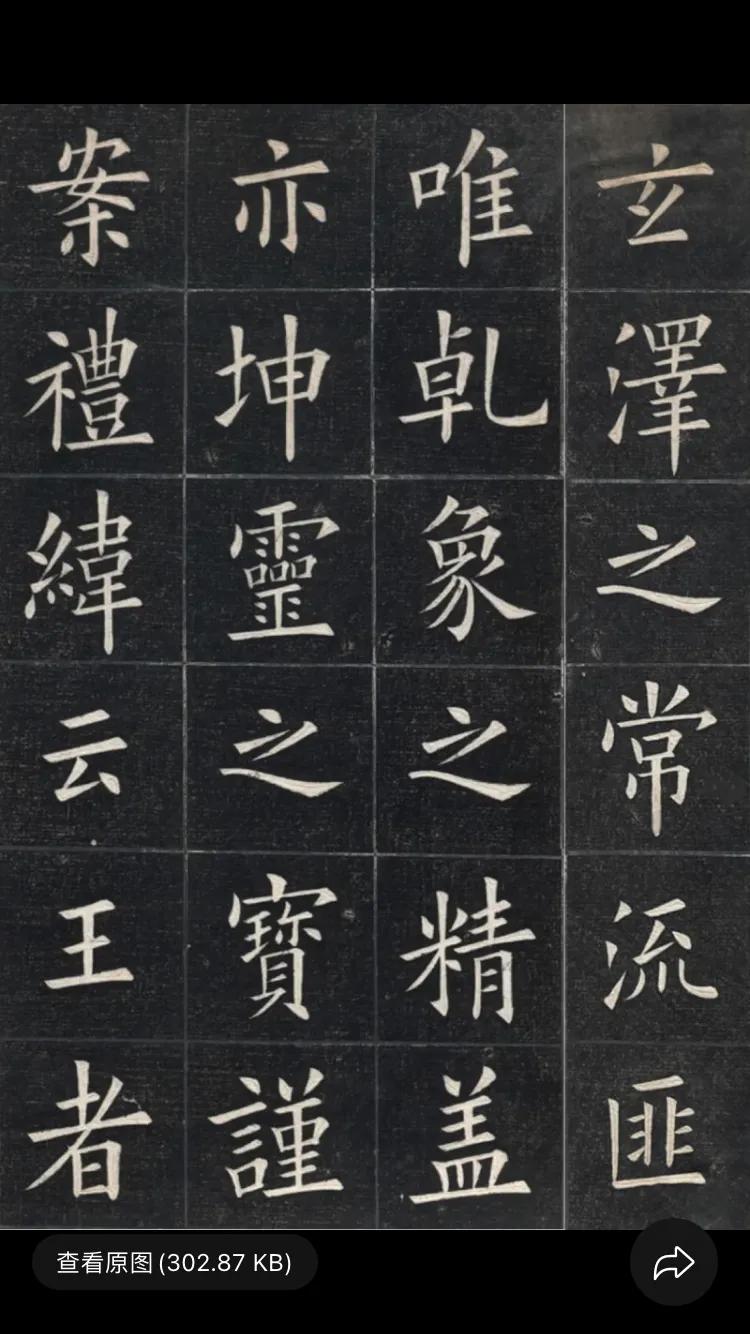 玄澤之常流匪
唯乹象之精盖
亦坤靈之寳謹
案禮緯云王者
查看原图(302.87 KB)